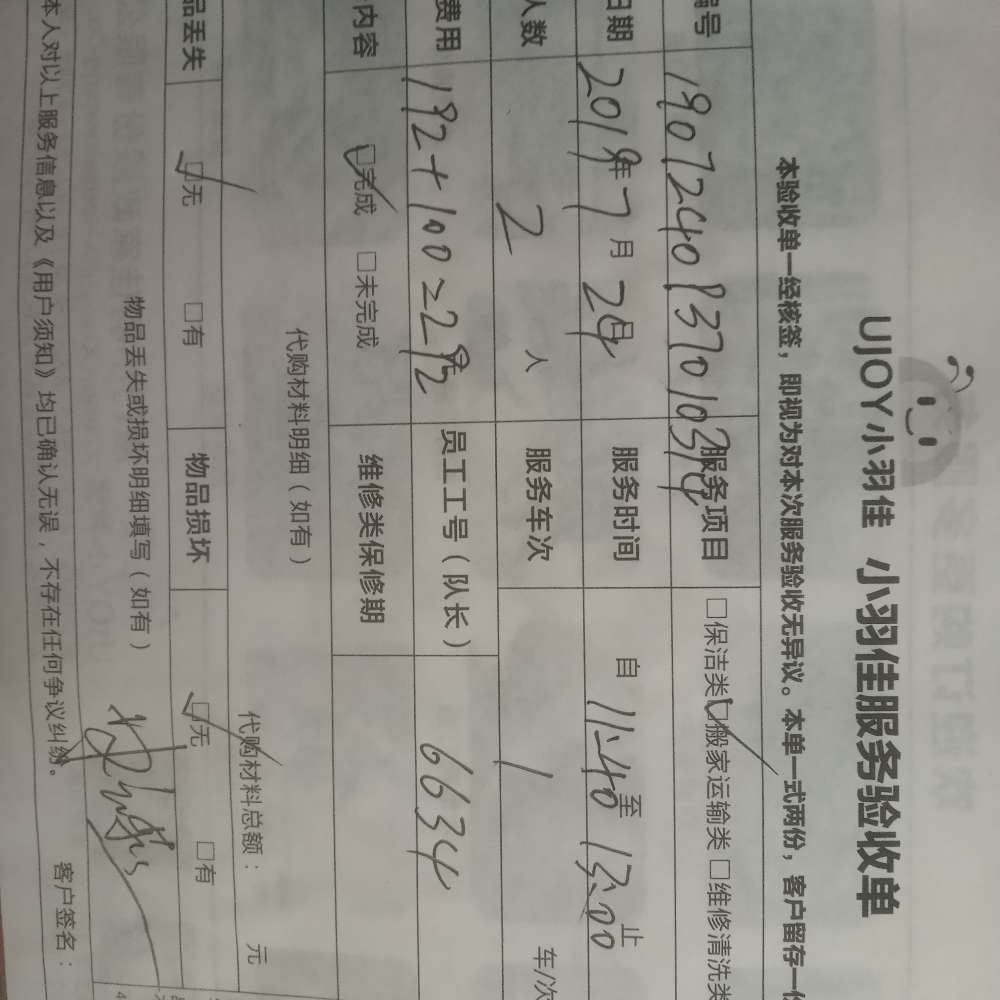 UJOY小羽佳 小羽佳服务验收单
本验收单一经核签，即视为对本次服务验收无异议。本单一式两份，客户留存一份
编号 服务项目 □保洁类 ☑搬家运输类 □维修清洗类
日期 2019年7月24日 服务时间 自 11:40 至 13:00 止
人数 2 人 服务车次 1 车/次
费用 192+100=292 元 员工工号（队长） 6634
内容 ☑完成 □未完成 维修类保修期
代购材料明细（如有） 代购材料总额： 元
品丢失 ☑无 □有 物品损坏 ☑无 □有
物品丢失或损坏明细填写（如有）
本人对以上服务信息以及《用户须知》均已确认无误，不存在任何争议纠纷。 客户签名：